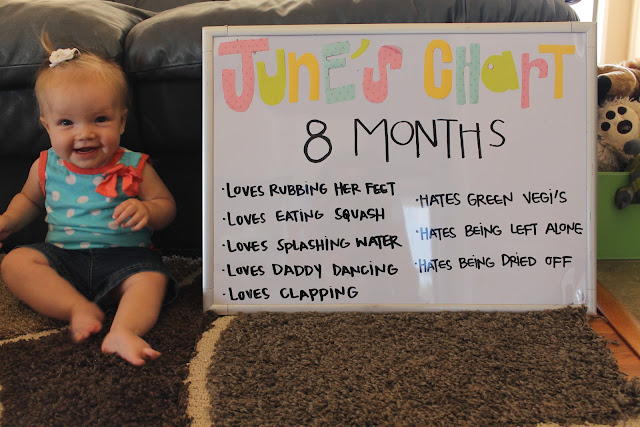 JUNE'S CHART
8 MONTHS
·LOVES RUBBING HER FEET
·LOVES EATING SQUASH
·LOVES SPLASHING WATER
·LOVES DADDY DANCING
·LOVES CLAPPING
·HATES GREEN VEGI'S
·HATES BEING LEFT ALONE
·HATES BEING DRIED OFF